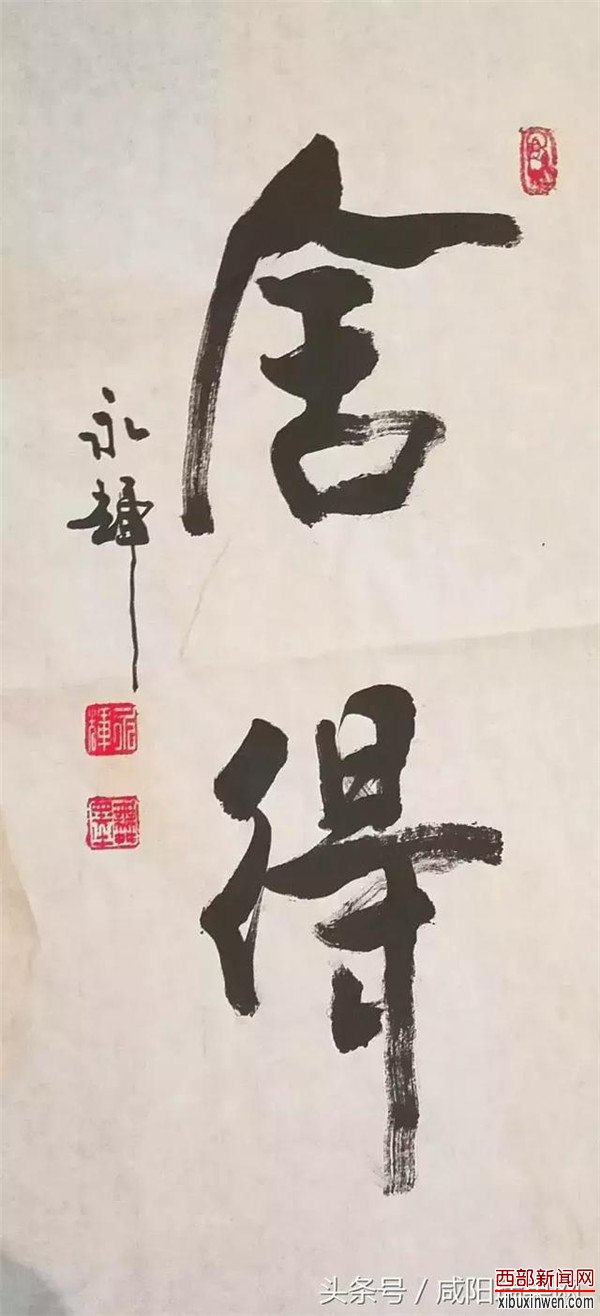 舍得
永辉
头条号 / 咸阳
西部新闻网
xibuxinwen.com